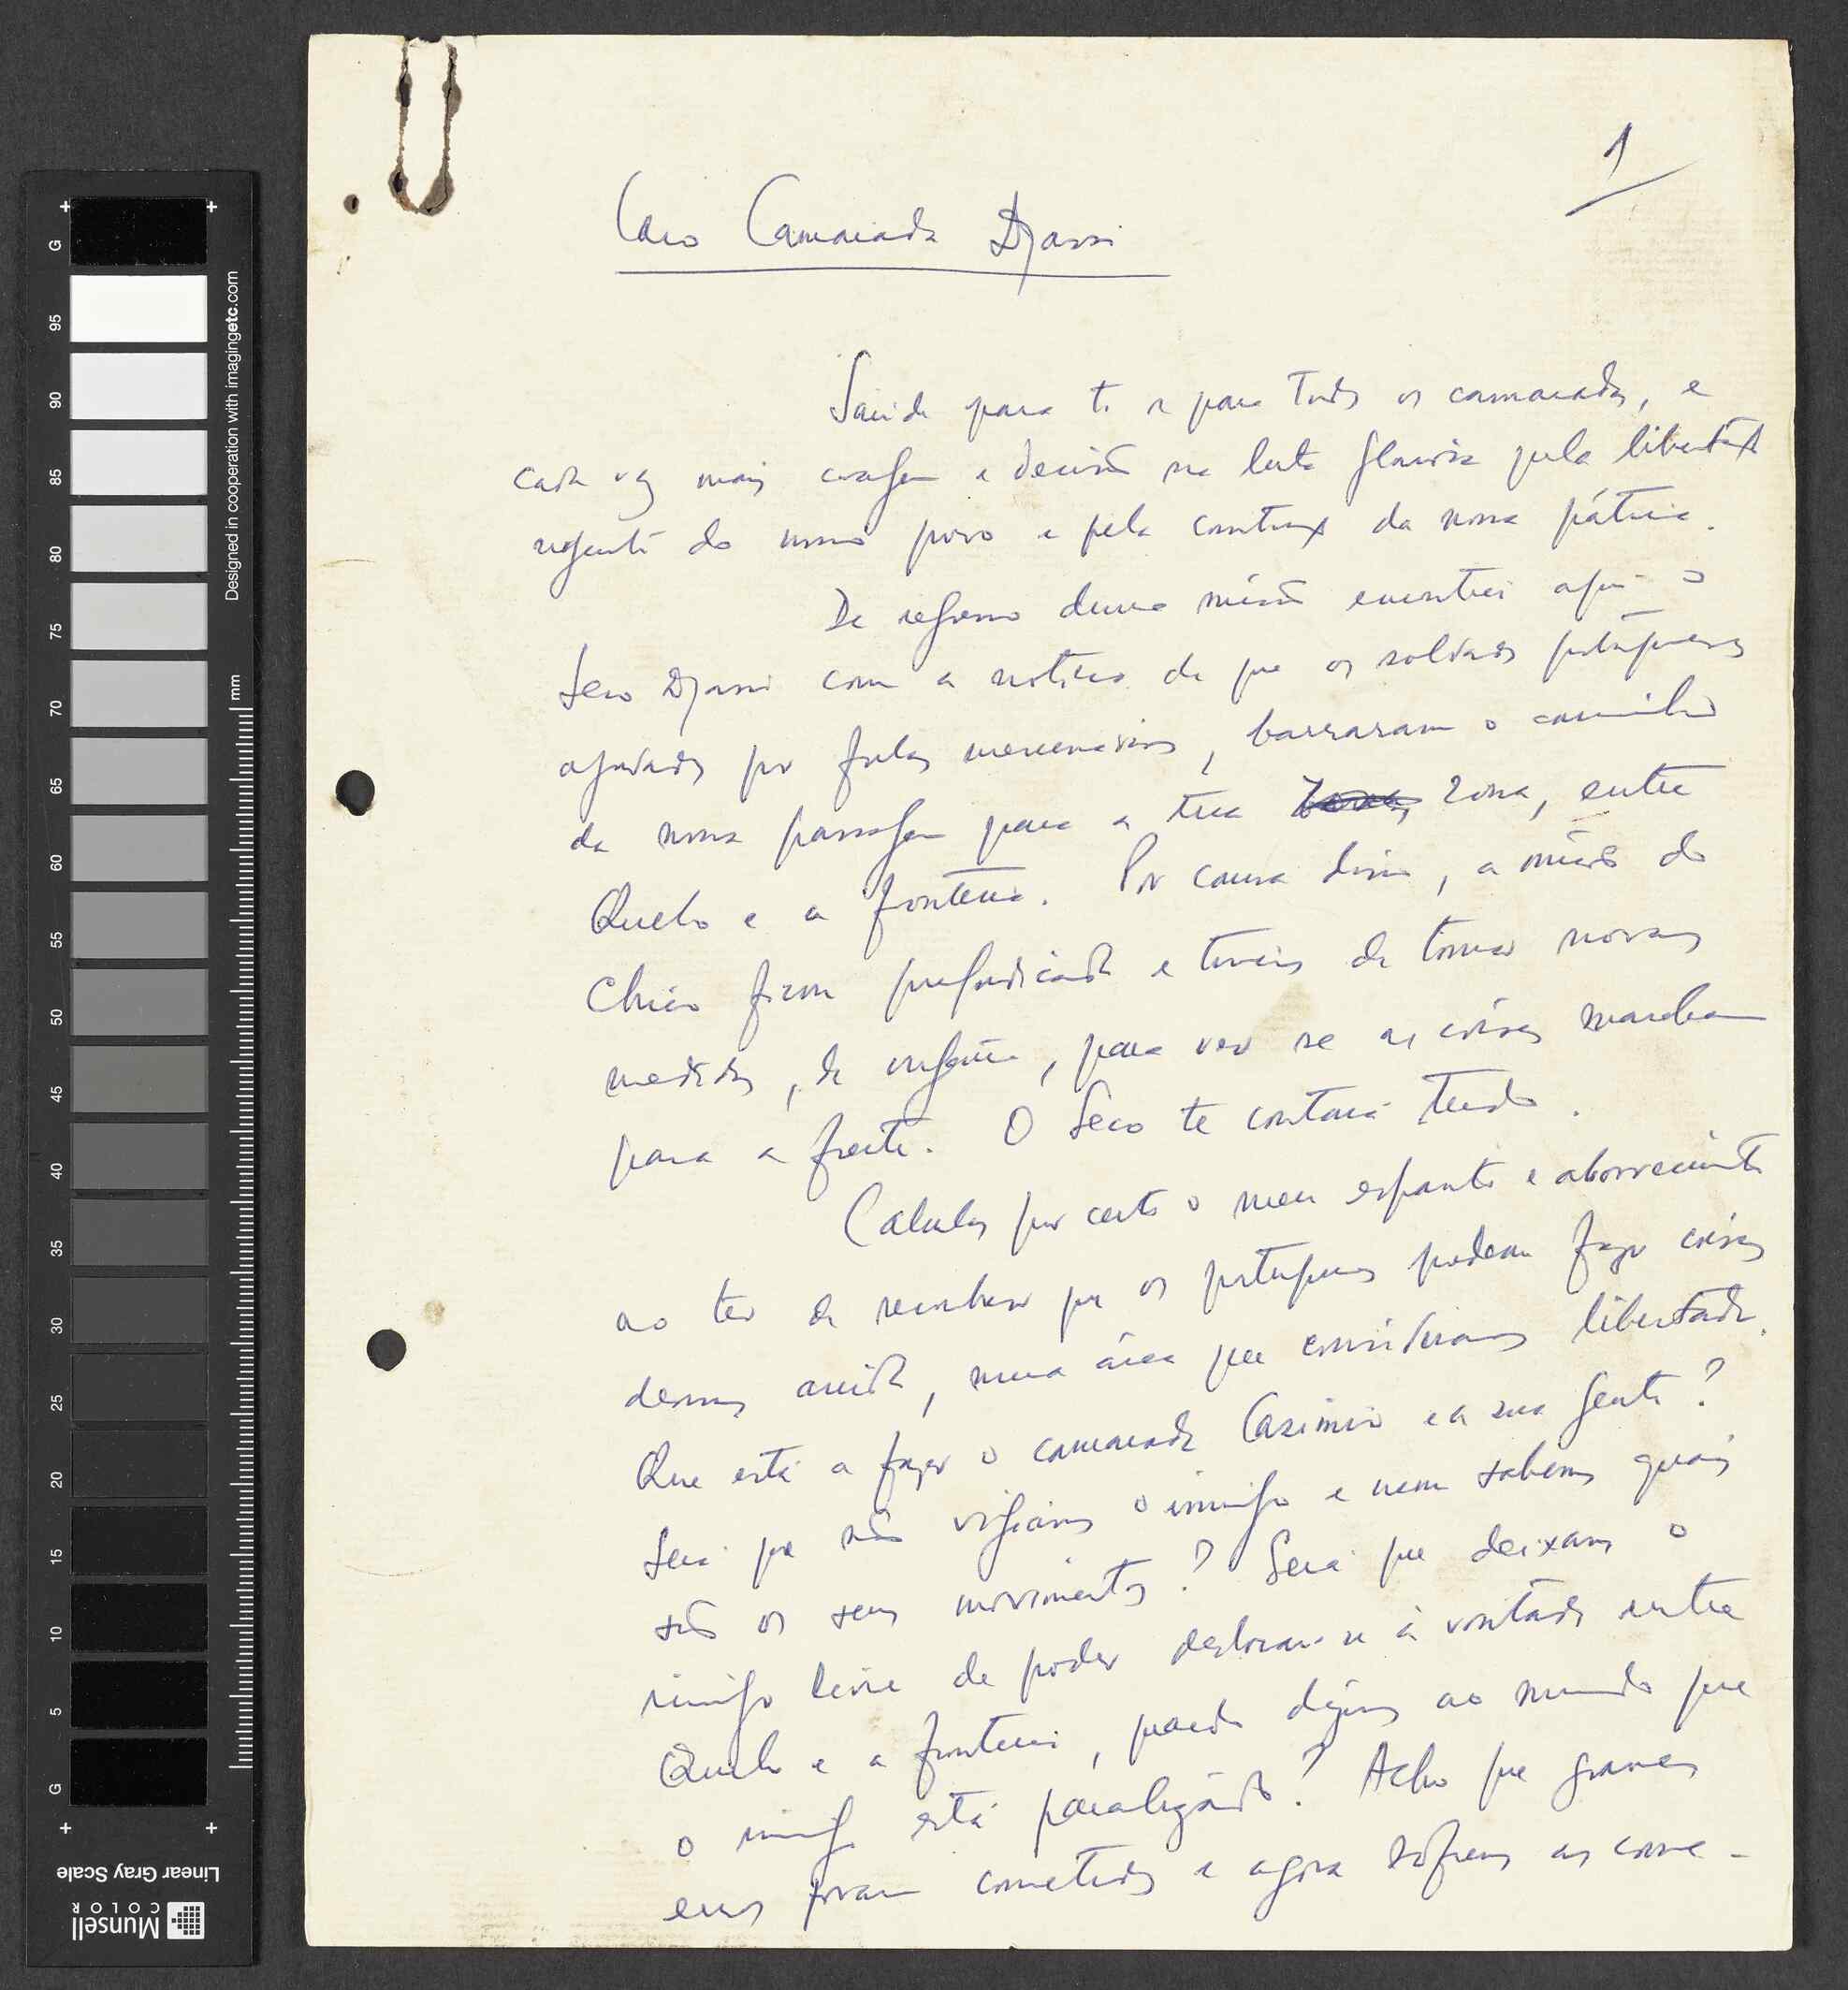 1
Caro Camarada Djassi
Saúde para ti e para todos os camaradas, e
cada vez mais coragem e decisão na luta gloriosa pela libertação
urgente do nosso povo e pela construção da nossa pátria.
De regresso duma missão encontrei aqui o
Seco Djassi com a notícia de que os soldados portugueses
ajudados por fulas mercenários, barraram o caminho
da nossa passagem para a tua zona, entre
Quebo e a fronteira. Por causa disso, a missão do
Chico ficou prejudicada e tivemos de tomar novas
medidas, de urgência, para ver se as coisas marcham
para a frente. O Seco te contará tudo.
Calculas por certo o meu espanto e aborrecimento
ao ter de reconhecer que os portugueses podem fazer coisas
dessas ainda, numa área que consideramos libertada.
Que está a fazer o camarada Casimiro e a sua gente?
Será que não vigiamos o inimigo e nem sabemos quais
são os seus movimentos? Será que deixamos o
inimigo livre de poder deslocar-se à vontade entre
Quebo e a fronteira, quando dizemos ao mundo que
o inimigo está paralizado? Acho que graves
erros foram cometidos e agora sofremos as conse-
Designed in cooperation with imagingetc.com
mm
G
95
90
85
80
75
70
65
60
55
50
45
40
35
30
25
20
15
10
5
G
Linear Gray Scale
Munsell
COLOR